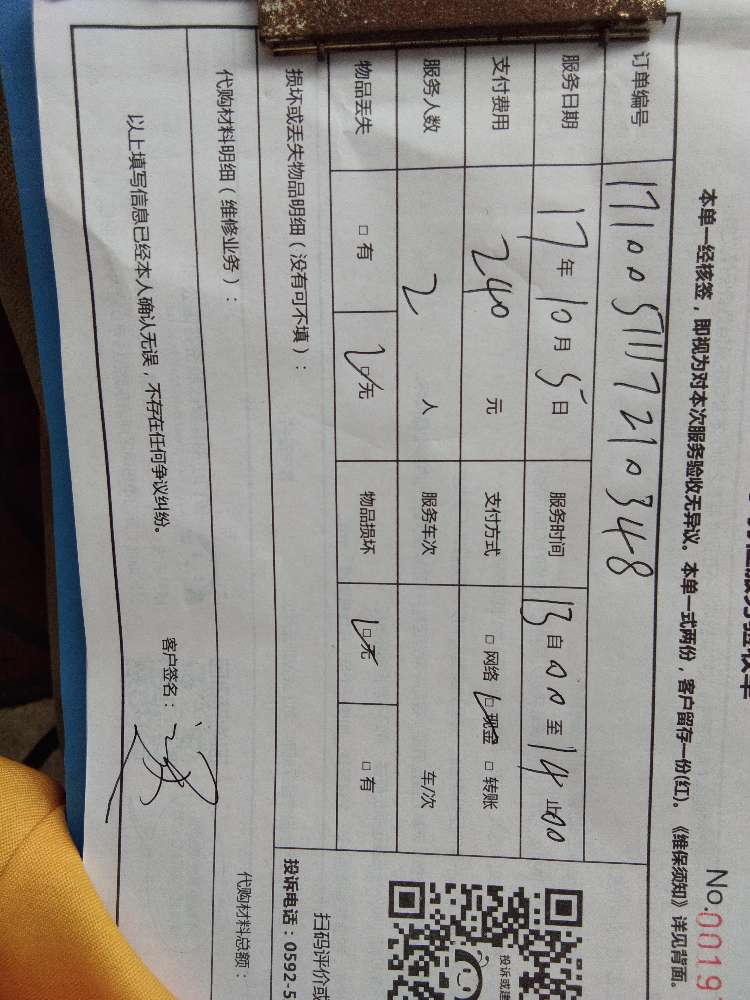 本单一经核签，即视为对本次服务验收无异议。本单一式两份，客户留存一份(红)。《维保须知》详见背面。
No.0019
订单编号 1710051117210348
服务日期 17年10月5日 服务时间 13自00至14止00
支付费用 240元 支付方式 □网络 □现金 □转账
服务人数 2人 服务车次 车/次
物品丢失 □有 □无 物品损坏 □无 □有
损坏或丢失物品明细（没有可不填）：
代购材料明细（维修业务）：
代购材料总额：
以上填写信息已经本人确认无误，不存在任何争议纠纷。
客户签名：
投诉或建
扫码评价或
投诉电话：0592-5